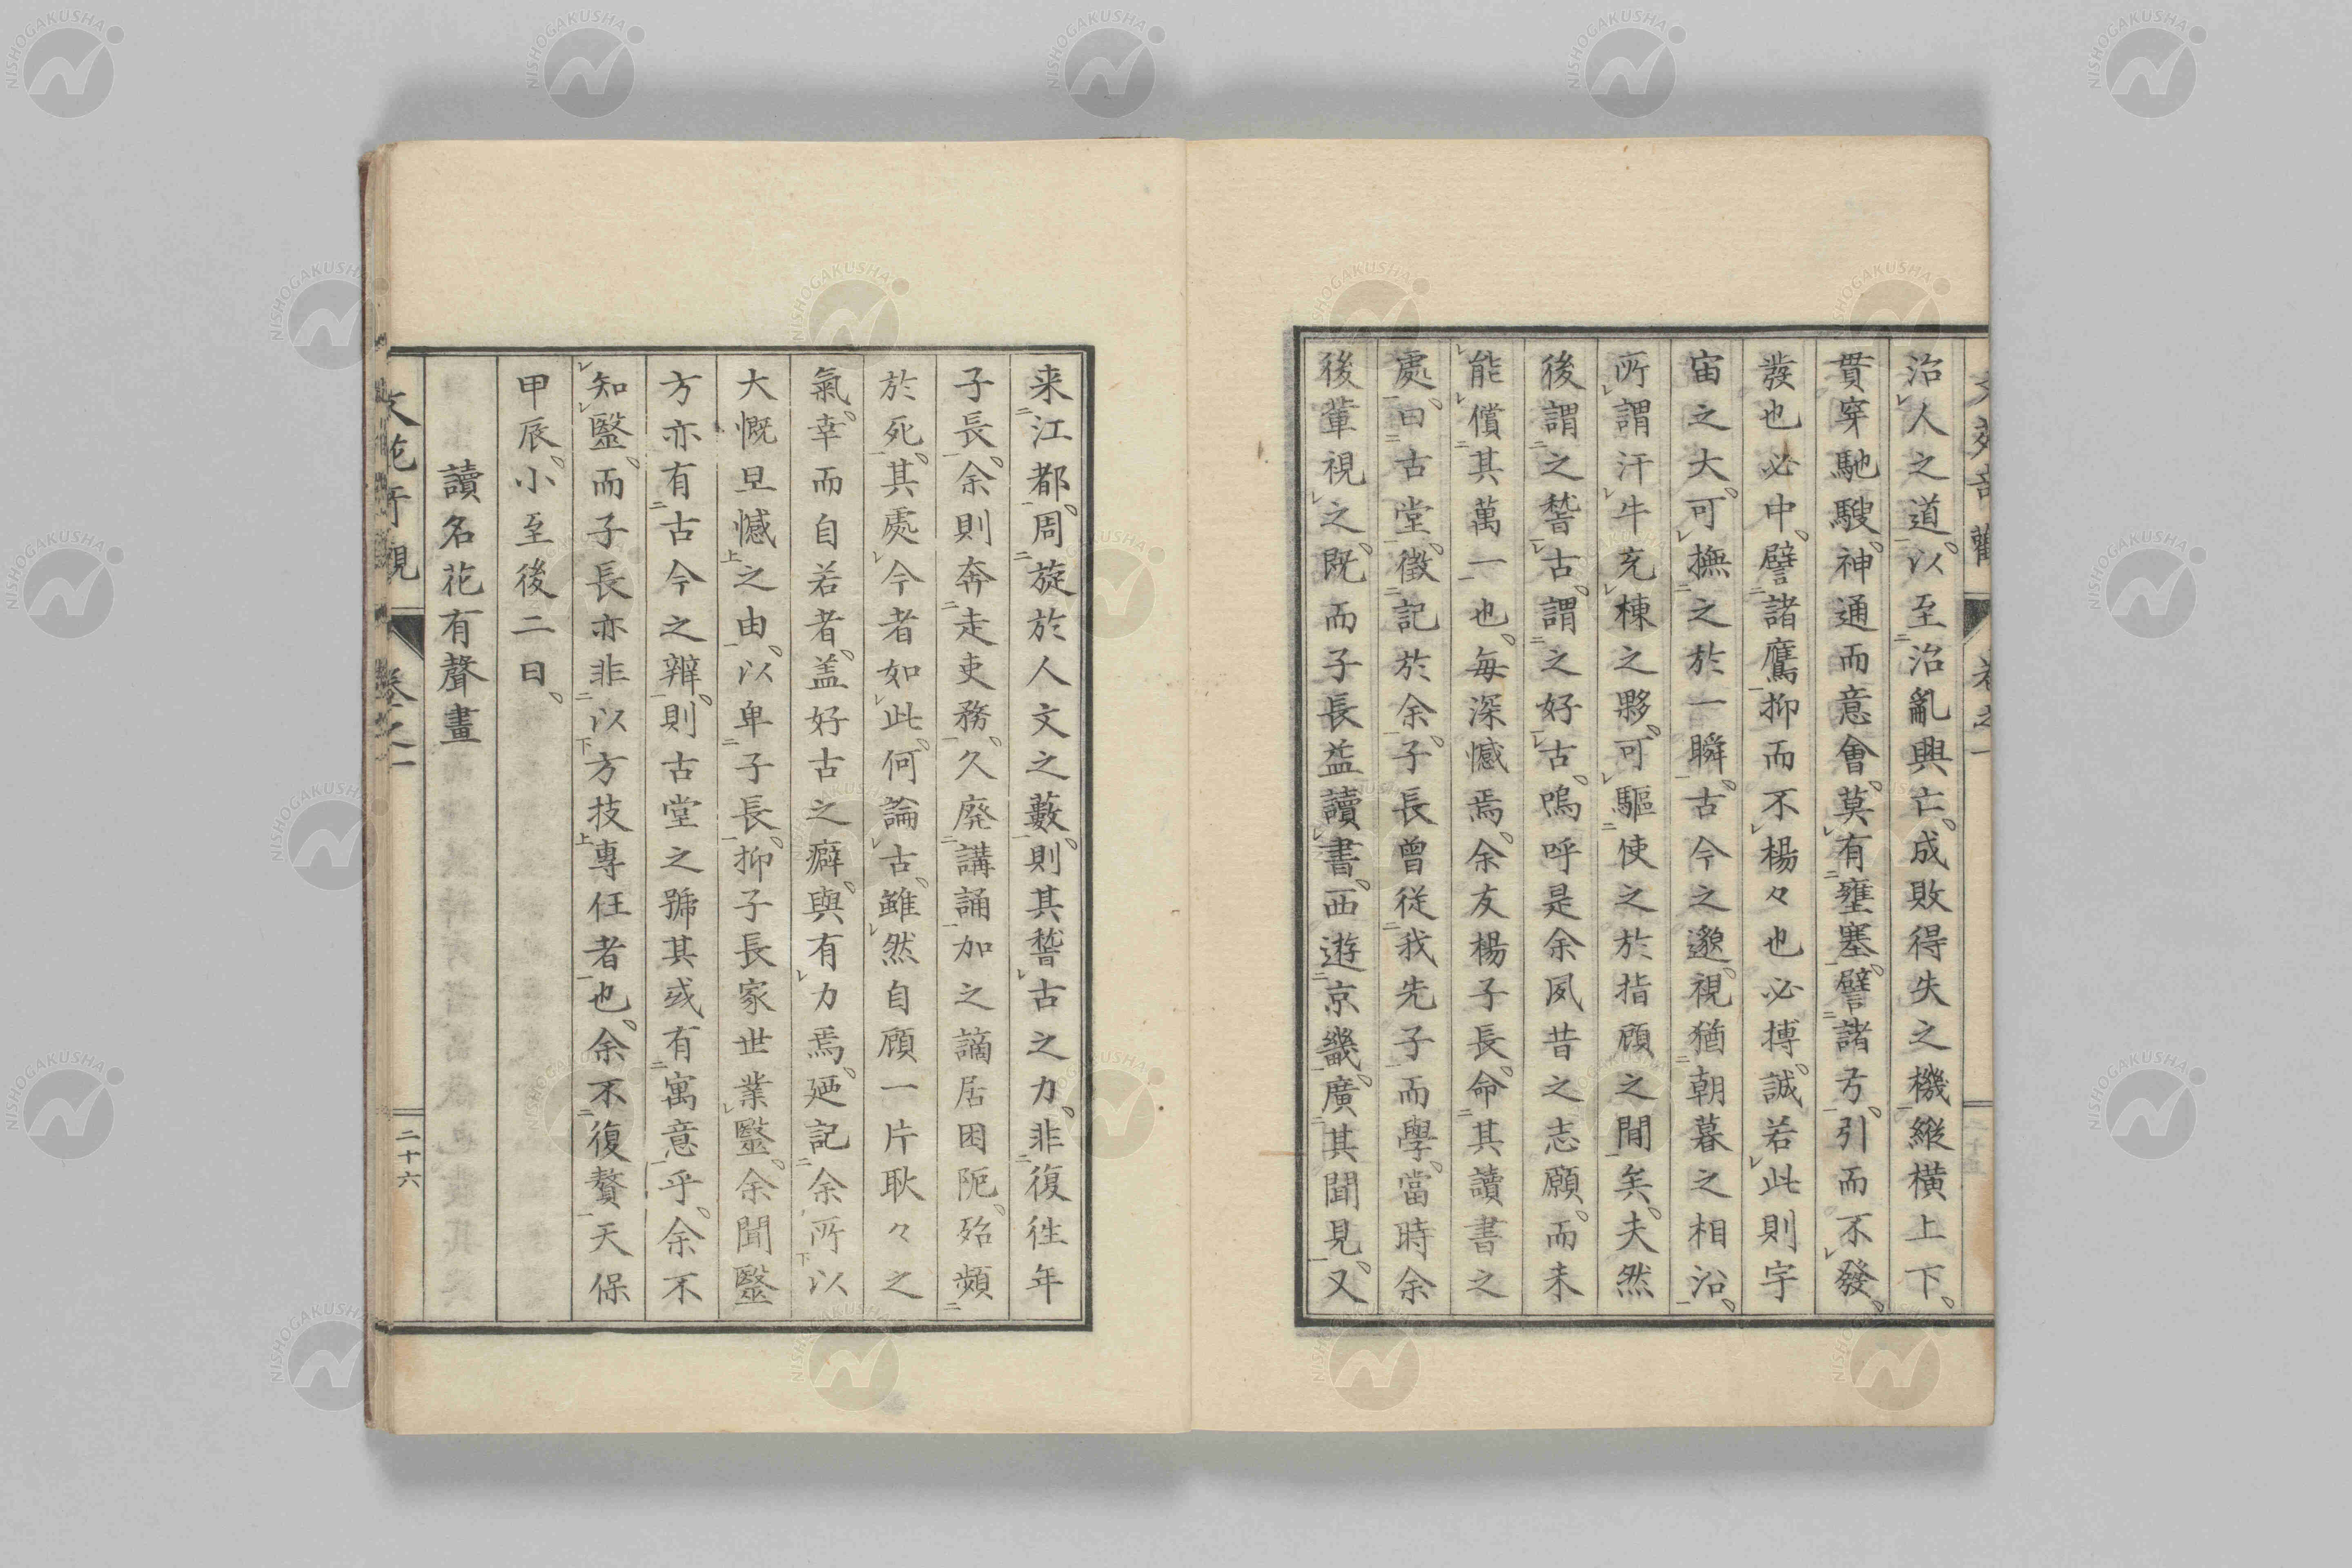 治人之道、以至治亂興亡、成敗得失之機、縱橫上下、
貫穿馳騣、神通而意會、莫有壅塞、譬諸方、引而不發、
發也必中、譬諸鷹、抑而不楊々也必搏、誠若此則宇
宙之大、可撫之於一瞬、古今之邈、視猶朝暮之相沿、
所謂汗牛充棟之夥、可驅使之於指顧之間矣、夫然
後謂之嵆古、謂之好古、嗚呼是余夙昔之志願、而未
能償其萬一也、每深憾焉、余友楊子長、命其讀書之
處、曰古堂、徵記於余、子長曾從我先子而學、當時余
後輩視之、既而子長益讀書、西遊京畿、廣其聞見、又
来江都、周旋於人文之藪、則其嵆古之力、非復往年
子長、余則奔走吏務、久廃講誦加之謫居困阨、殆頻
於死、其處今者如此、何論古、雖然自顧一片耿々之
氣、幸而自若者、盖好古之癖、與有力焉、廼記余所以
大慨且憾之由、以卑子長、抑子長家世業毉、余聞毉
方亦有古今之辨、則古堂之號其或有寓意乎、余不
知毉、而子長亦非以方技專任者也、余不復贅、天保
甲辰、小至後二日、
讀名花有聲畫
卷之一
二十六
NISHOGAKUSHA